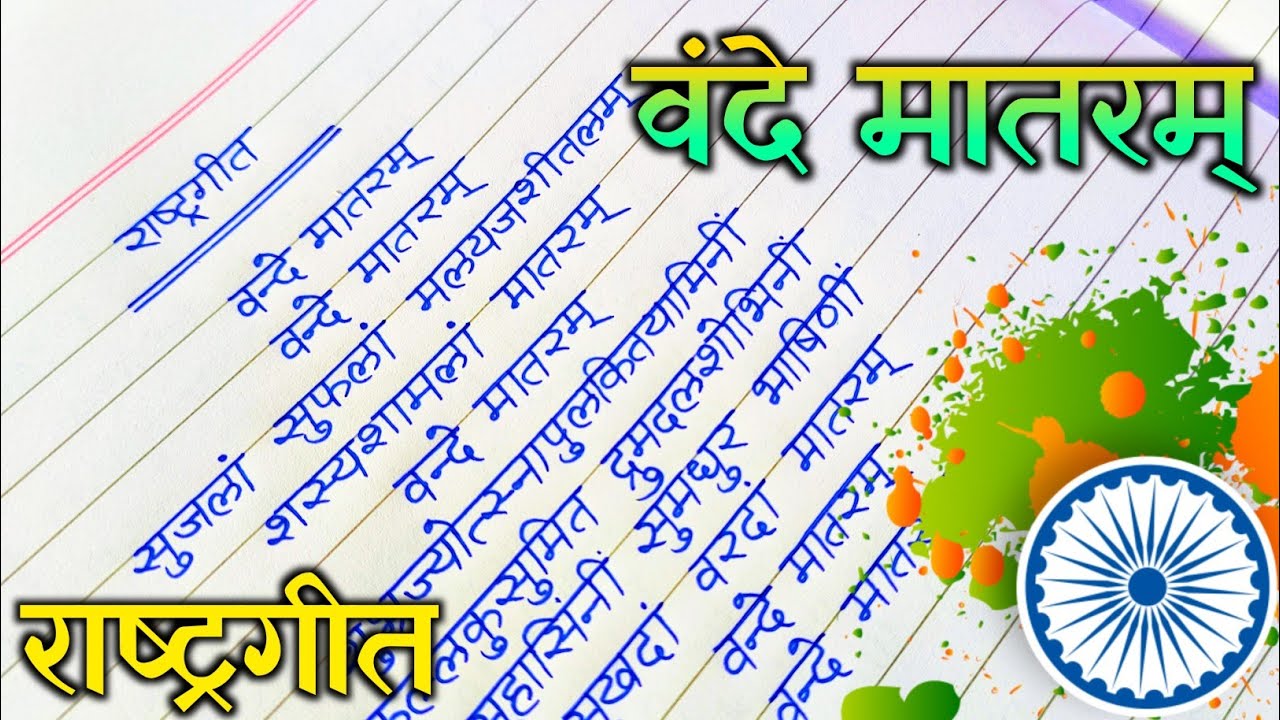 वंदे मातरम्
राष्ट्रगीत
वन्दे मातरम्
वन्दे मातरम्
सुजलां सुफलां मलयजशीतलम्
शस्यशामलां मातरम्
वन्दे मातरम्
ज्योत्स्नापुलकितयामिनीं
कुसुमित द्रुमदलशोभिनीं
सुहासिंनीं सुमधुर भाषिणीं
सुखदां वरदां मातरम्
वन्दे मातरम्
वन्दे मातर
राष्ट्रगीत